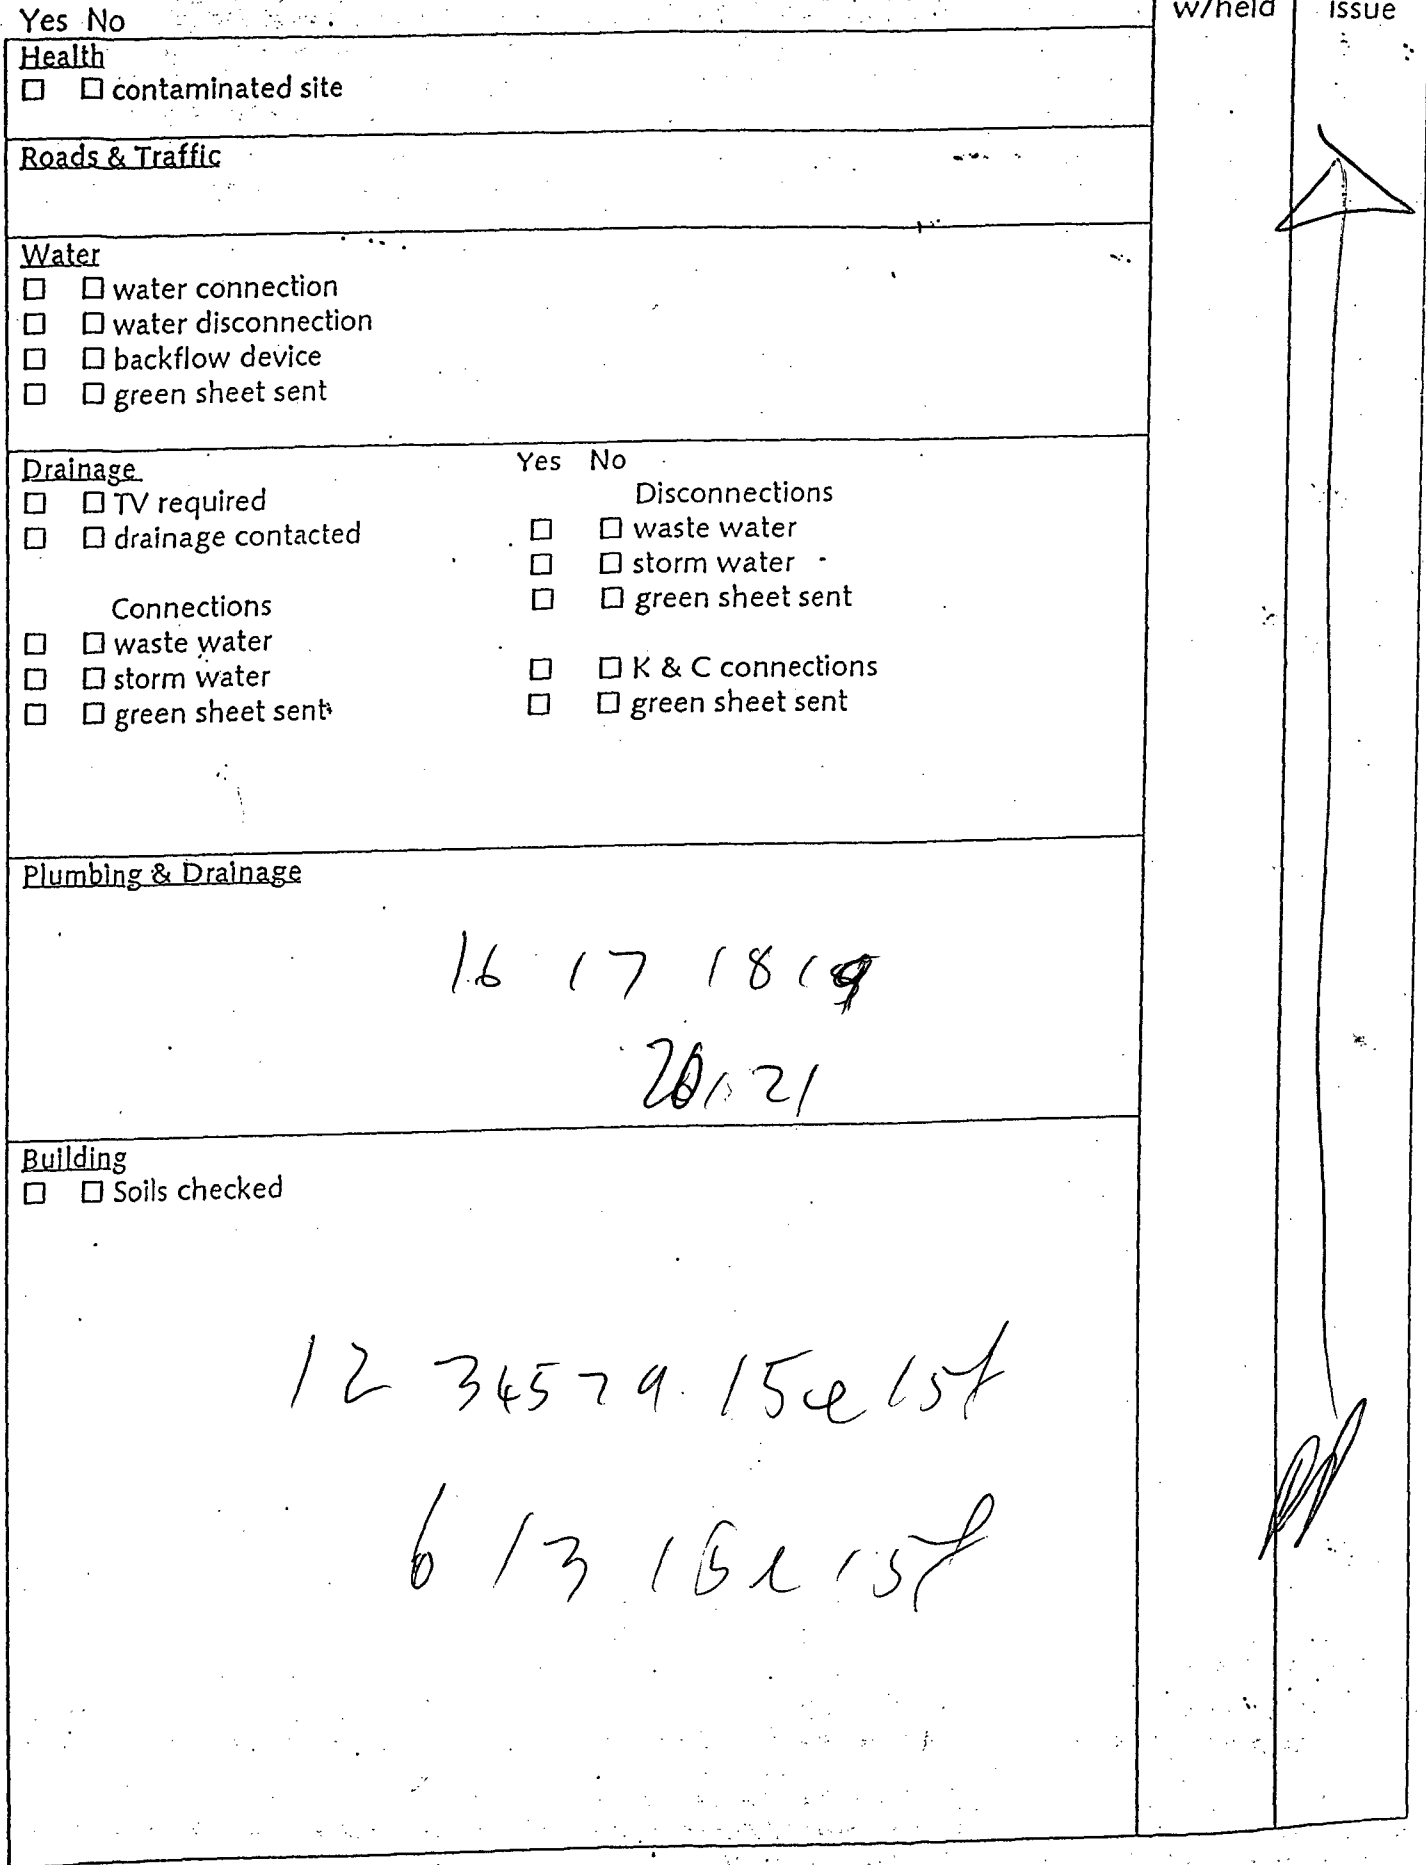 Yes No
w/held
issue
Health
☐ ☐ contaminated site
Roads & Traffic
Water
☐ ☐ water connection
☐ ☐ water disconnection
☐ ☐ backflow device
☐ ☐ green sheet sent
Drainage
☐ ☐ TV required
☐ ☐ drainage contacted
Connections
☐ ☐ waste water
☐ ☐ storm water
☐ ☐ green sheet sent
Yes No
Disconnections
☐ ☐ waste water
☐ ☐ storm water
☐ ☐ green sheet sent
☐ ☐ K & C connections
☐ ☐ green sheet sent
Plumbing & Drainage
16 17 18 19
20 21
Building
☐ ☐ Soils checked
1 2 3 4 5 7 9 15e 15f
6 13 15e 15f